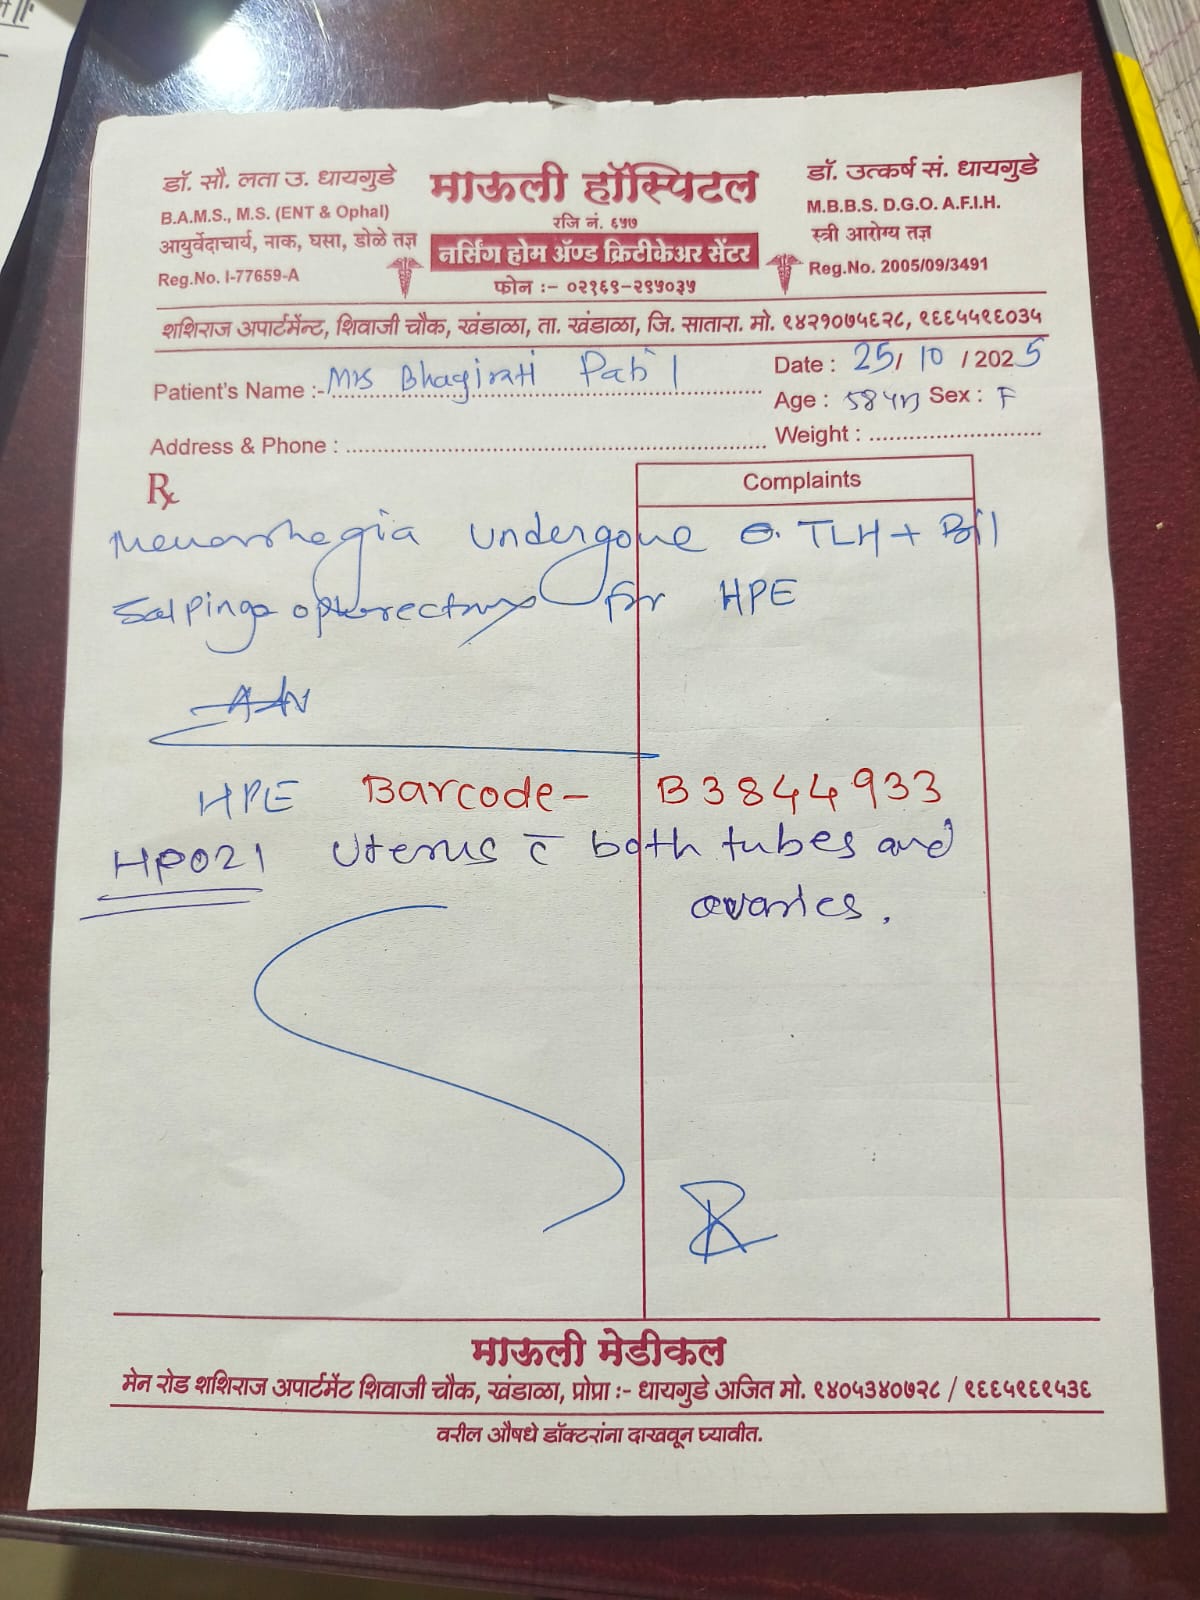 डॉ. सौ. लता उ. धायगुडे
B.A.M.S., M.S. (ENT & Ophal)
आयुर्वेदाचार्य, नाक, घसा, डोळे तज्ञ
Reg.No. I-77659-A
माऊली हॉस्पिटल
रजि नं. ६५७
नर्सिंग होम ॲण्ड क्रिटीकेअर सेंटर
फोन :- ०२१६९-२९५०३५
डॉ. उत्कर्ष सं. धायगुडे
M.B.B.S. D.G.O. A.F.I.H.
स्त्री आरोग्य तज्ञ
Reg.No. 2005/09/3491
शशिराज अपार्टमेंन्ट, शिवाजी चौक, खंडाळा, ता. खंडाळा, जि. सातारा. मो. ९४२१०७५६२८, ९६६५५९६०३५
Patient's Name :- Mrs Bhagirati Patil
Date : 25/ 10 / 2025
Age : 58 yrs Sex : F
Address & Phone :
Weight :
Rx
Complaints
Menorrhagia undergone TLH + Bil
Salpingo ophorectomy for HPE
HPE Barcode- B3844933
HP021 Uterus c̅ both tubes and
ovaries.
माऊली मेडीकल
मेन रोड शशिराज अपार्टमेंट शिवाजी चौक, खंडाळा, प्रोप्रा :- धायगुडे अजित मो. ९४०५३४०७२८ / ९६६५९६९५३६
वरील औषधे डॉक्टरांना दाखवून घ्यावीत.